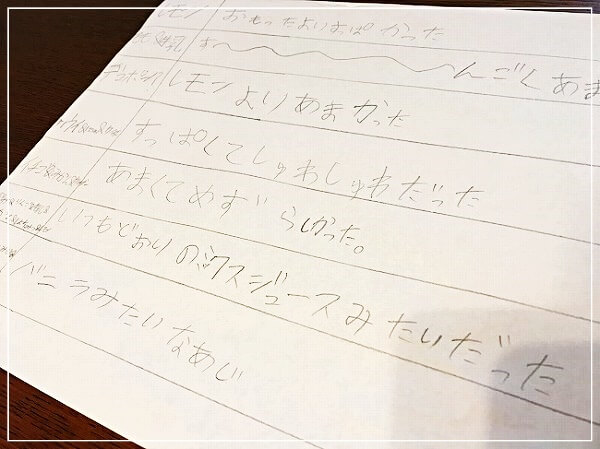 レモン おもったよりすっぱかった
す〜〜〜〜〜〜んごくあま
デコポン レモンよりあまかった
すっぱくてしゅわしゅわだった
あまくてめずらしかった。
いつもどおりのミックスジュースみたいだった
バニラみたいなあじ